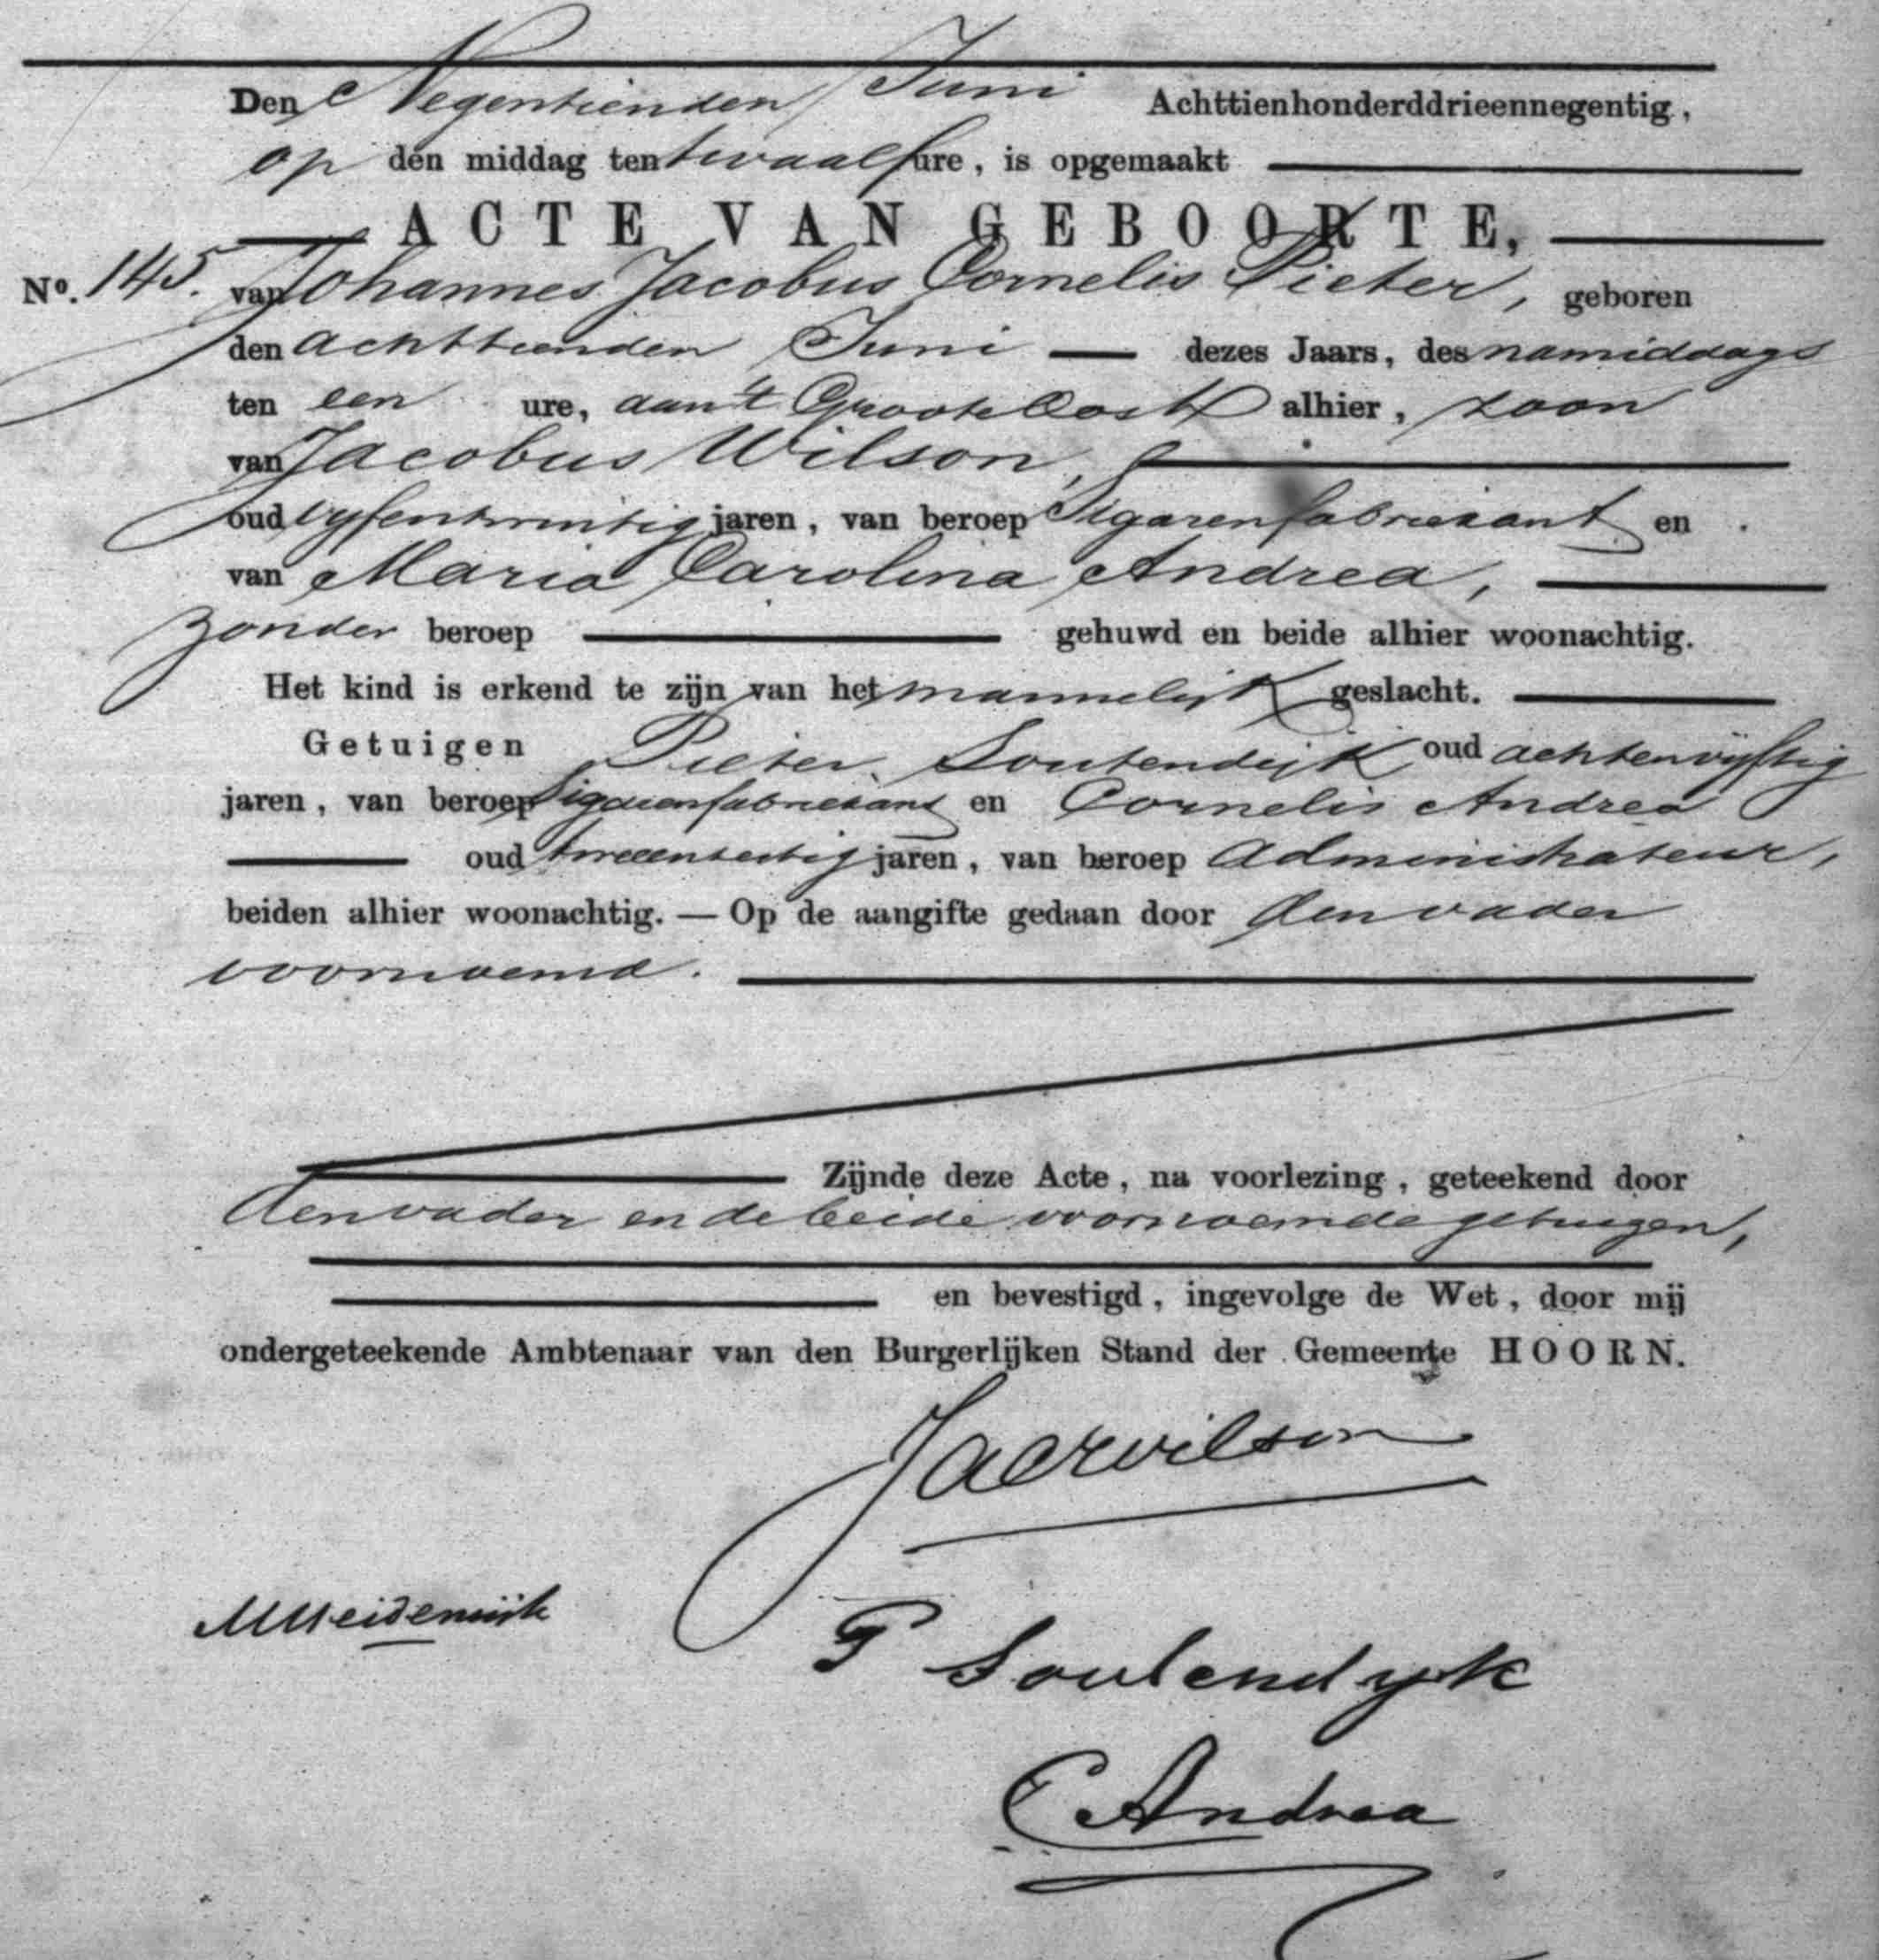 Den Negentienden Juni Achttienhonderddrieennegentig,
op den middag ten twaalf ure, is opgemaakt
ACTE VAN GEBOORTE,
No. 145. van Johannes Jacobus Cornelis Pieter, geboren
den achttienden Juni dezes Jaars, des namiddags
ten een ure, aan 't Groote Oost alhier, zoon
van Jacobus Wilson,
oud vyfentwintig jaren, van beroep Sigarenfabriekant en
van Maria Carolina Andrea,
zonder beroep gehuwd en beide alhier woonachtig.
Het kind is erkend te zijn van het mannelijk geslacht.
Getuigen Pieter Soutendijk oud achtenvijftig
jaren, van beroep Sigarenfabriekant en Cornelis Andrea
oud jaren, van beroep Administrateur,
beiden alhier woonachtig. — Op de aangifte gedaan door den vader
voornoemd.
Zijnde deze Acte, na voorlezing, geteekend door
den vader en de beide voornoemde getuigen,
en bevestigd, ingevolge de Wet, door mij
ondergeteekende Ambtenaar van den Burgerlijken Stand der Gemeente HOORN.
Jac Wilson
P Soutendyk
C Andrea